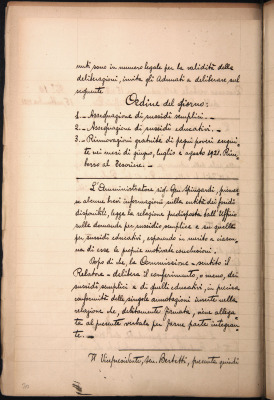 nuti sono in numero legale per la validità delle
deliberazioni, invita gli Adunati a deliberare sul
seguente
Ordine del giorno:
1. - Assegnazione di sussidi semplici. -
2. - Assegnazione di sussidi educativi. -
3. - Rinnovazioni gratuite di pegni poveri esegui-
te nei mesi di giugno, luglio e agosto 1921. Rim-
borso al Tesoriere. -
L'Amministratore sig. Spingardi, premes-
se alcune brevi informazioni sulla entità dei fondi
disponibili, legge la relazione predisposta dall'Ufficio
sulle domande per sussidio semplice e su quelle
per sussidi educativi, esponendo in merito a ciascu-
na di esse le proprie motivate conclusioni. -
Dopo di che, la Commissione - sentito il
Relatore - delibera il conferimento, o meno, dei
sussidi semplici e di quelli educativi, in precisa
conformità delle singole annotazioni inserite nella
relazione che, debitamente firmata, viene allega-
ta al presente verbale per farne parte integran-
te. -
Il Vicepresidente, Sen. Bertetti, presenta quindi